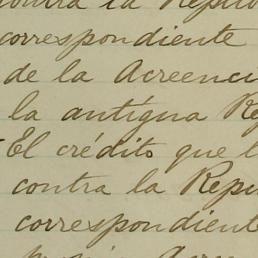 contra la Repu
correspondiente
de la Acreenci
la antígua Re
El crédito que t
contra la Repu
correspondient